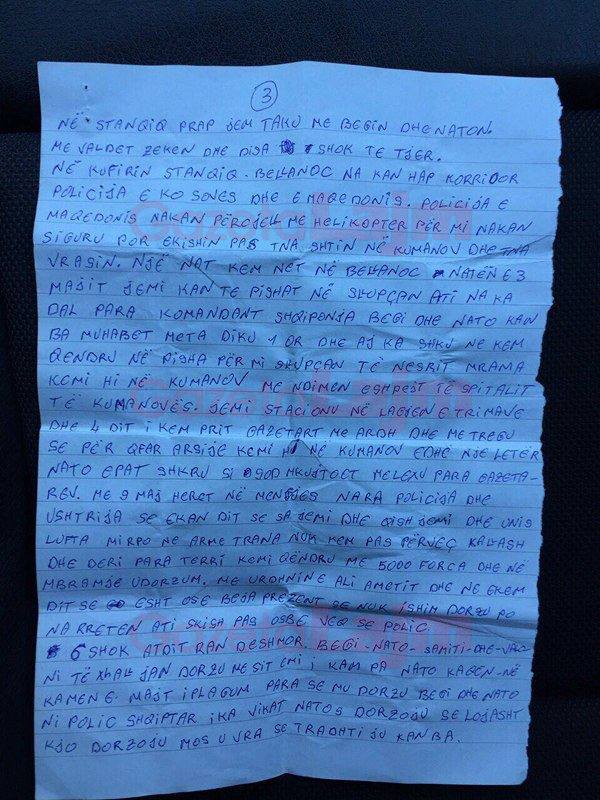 3
NË STANQIQ PRAP JEM TAKU ME BEGIN DHE NATON.
ME VALDET ZEKEN DHE DISA SHOK TE TJER.
NË KUFIRIN STANQIQ - BELLANOC NA KAN HAP KORRIDOR
POLICIJA E KOSOVES DHE E MAQEDONIS. POLICIJA E
MAQEDONIS NAKAN PËRCJELL ME HELIKOPTER PËR MI NAKAN
SIGURU POR EKISHIN PAS TNA SHTIN NË KUMANOV DHE TNA
VRASIN. NJË NAT KEM NET NË BELLANOC NATËN E 3
MAJIT JEMI KAN TE PISHAT NË SHUPÇAN ATI NA KA
DAL PARA KOMANDANT SHQIPONJA BEGI DHE NATO KAN
BA MUHABET META DIKU 1 OR DHE AJ KA SHKU NE KEM
QENDRU NË PISHA PËR MI SHUPÇAN TË NESRIT MRAMA
KEMI HI NË KUMANOV ME NDIMEN ESHPEST TE SPITALIT
TË KUMANOVËS. JEMI STACIONU NË LAGJEN E TRIMAVE
DHE 4 DIT I KEM PRIT GAZETART ME ARDH DHE ME TREGU
SE PËR QFAR ARSIJE KEMI HI NË KUMANOV EDHE NJE LETËR
NATO EPAT SHKRU SI 900 MKUJTOET MELEXU PARA GAZETA-
REV. ME 9 MAJ HERET NË MENGJES NA RA POLICIJA DHE
USHTRIJA SE EKAN DIT SE SA JEMI DHE QISH JEMI DHE UNIS
LUFTA MIRPO NE ARME TRANA NUK KEM PAS PËRVEÇ KALLASH
DHE DERI PARA TERRI KEMI QËNDRU ME 5000 FORCA DHE NË
MBRAMJE UDORZUM. ME URDHNIN E ALI AMETIT DHE NE EKEM
DIT SE ESHT OSE BEJA PREZENT SE NUK ISHIM DORZU PO
NA RRETEN ATI SKISH PAS OSBE VEQ SE POLIC.
6 SHOK ATDIT RAN DESHMOR. BEGI - NATO - SAMITI - DHE -
NI TË JAN DORZU ME SIT EMI I KAM PA NATO KAGEN - NË
KAMEN E MAJT IPLAGUM PARA SE MU DORZU BEGI DHE NATO
NI POLIC SHQIPTAR IKA VIKAT NATOS DORZOJU SE LOJASHT
KJO DORZOJU MOS U VRA SE TRADHTI JU KAN BA.